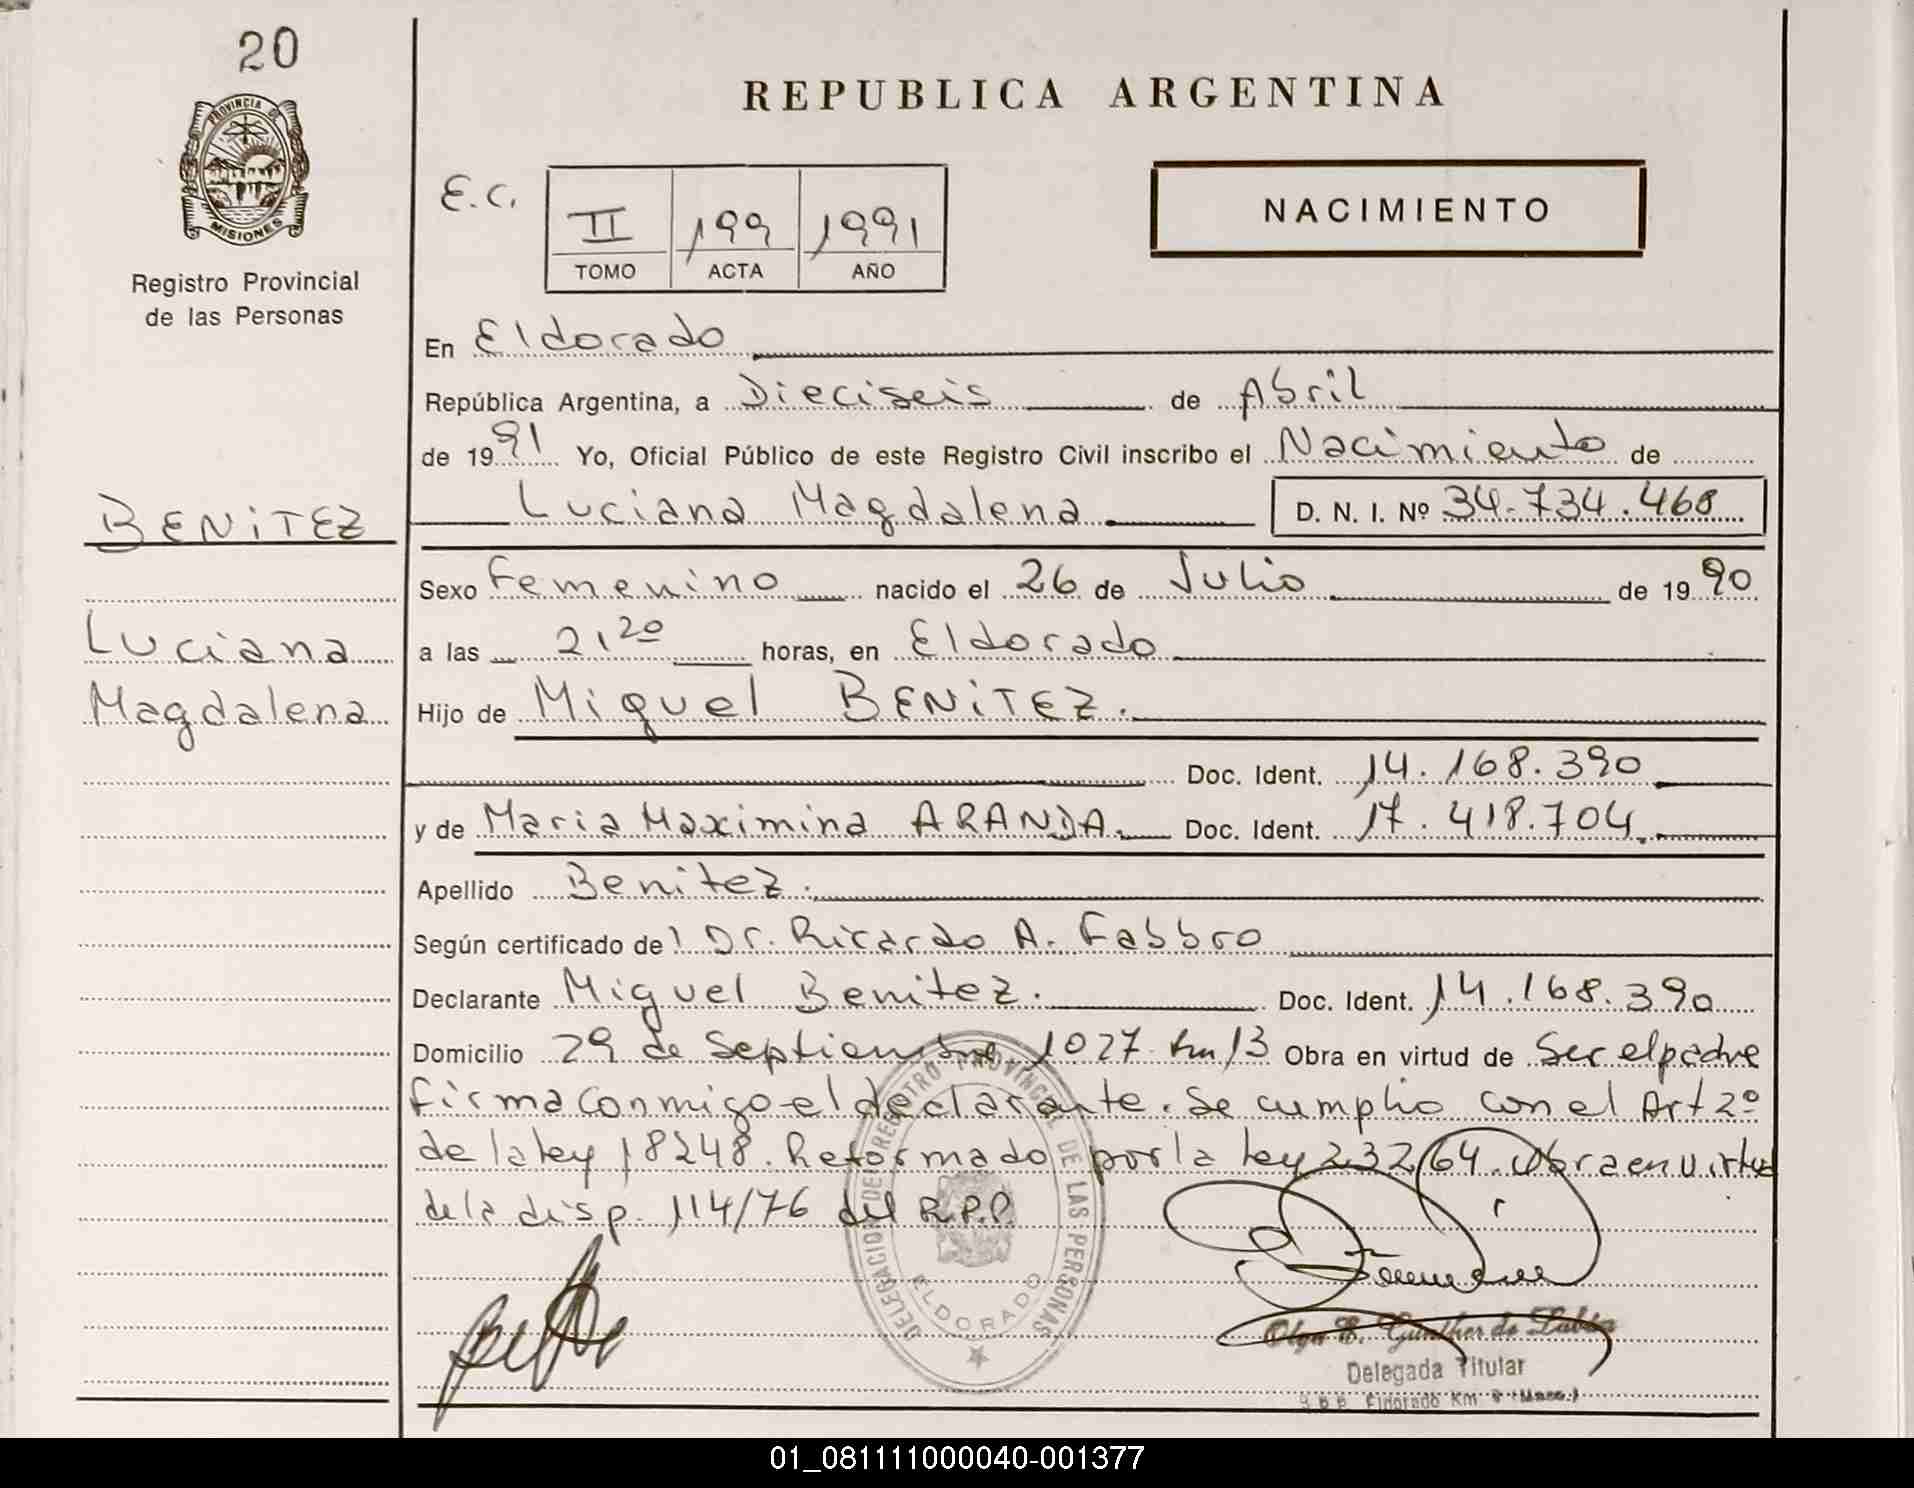 20
PROVINCIA DE
MISIONES
Registro Provincial
de las Personas
BENITEZ
Luciana
Magdalena
REPUBLICA ARGENTINA
E.C.
II 199 1991
TOMO ACTA AÑO
NACIMIENTO
En Eldorado
República Argentina, a Dieciseis de Abril
de 1991 Yo, Oficial Público de este Registro Civil inscribo el Nacimiento de
Luciana Magdalena D. N. I. Nº 34.734.468
Sexo Femenino nacido el 26 de Julio de 1990
a las 21 20 horas, en Eldorado
Hijo de Miguel BENITEZ.
Doc. Ident. 14.168.390
y de Maria Maximina ARANDA. Doc. Ident. 17.418.704.
Apellido Benitez.
Según certificado de Dr. Ricardo A. Fabbro
Declarante Miguel Benitez. Doc. Ident. 14.168.390
Domicilio 29 de Septiembre 1027 km 13 Obra en virtud de Ser el padre
firma conmigo el declarante. Se cumplio con el Art 2º
de la ley 18248. Reformado por la ley 23264. Obra en virtud
de la disp. 114/76 del R.P.P.
DELEGACION DEL REGISTRO PROVINCIAL DE LAS PERSONAS
ELDORADO
Olga E. Gunther de Lubin
Delegada Titular
Eldorado Km
01_081111000040-001377